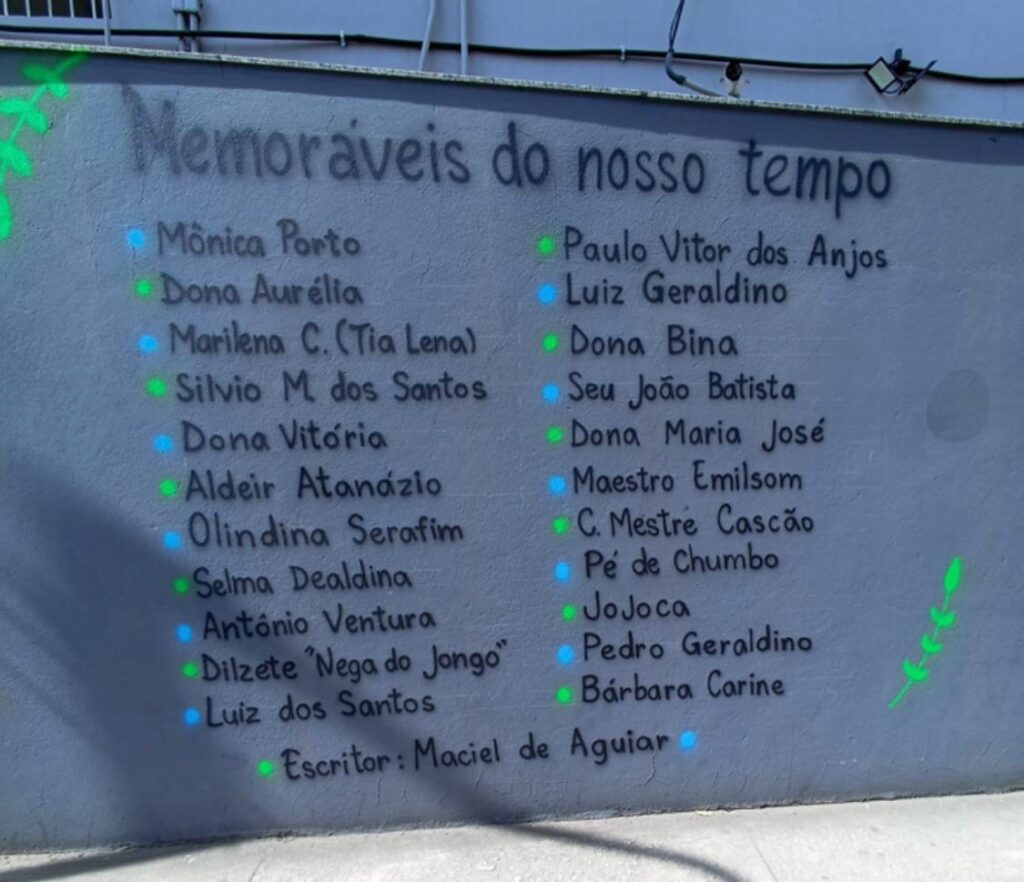 Memoráveis do nosso tempo
Mônica Porto
Dona Aurélia
Marilena C. (Tia Lena)
Silvio M. dos Santos
Dona Vitória
Aldeir Atanázio
Olindina Serafim
Selma Dealdina
Antônio Ventura
Dilzete "Nega do Jongo"
Luiz dos Santos
Paulo Vitor dos Anjos
Luiz Geraldino
Dona Bina
Seu João Batista
Dona Maria José
Maestro Emilsom
C. Mestre Cascão
Pé de Chumbo
JoJoca
Pedro Geraldino
Bárbara Carine
Escritor: Maciel de Aguiar